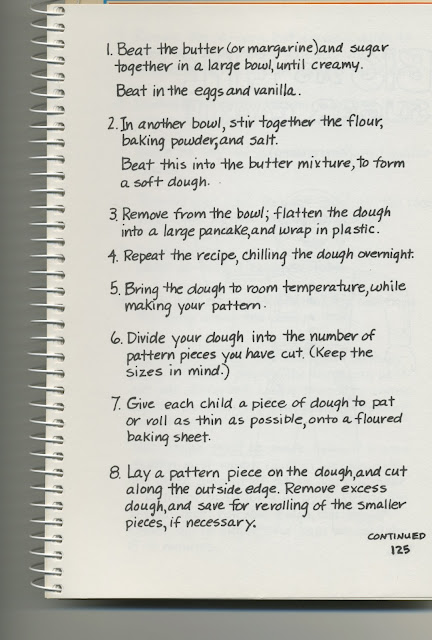 1. Beat the butter (or margarine) and sugar
together in a large bowl, until creamy.
Beat in the eggs and vanilla.
2. In another bowl, stir together the flour,
baking powder, and salt.
Beat this into the butter mixture, to form
a soft dough.
3. Remove from the bowl; flatten the dough
into a large pancake, and wrap in plastic.
4. Repeat the recipe, chilling the dough overnight.
5. Bring the dough to room temperature, while
making your pattern.
6. Divide your dough into the number of
pattern pieces you have cut. (Keep the
sizes in mind.)
7. Give each child a piece of dough to pat
or roll as thin as possible, onto a floured
baking sheet.
8. Lay a pattern piece on the dough, and cut
along the outside edge. Remove excess
dough, and save for rerolling of the smaller
pieces, if necessary.
CONTINUED
125